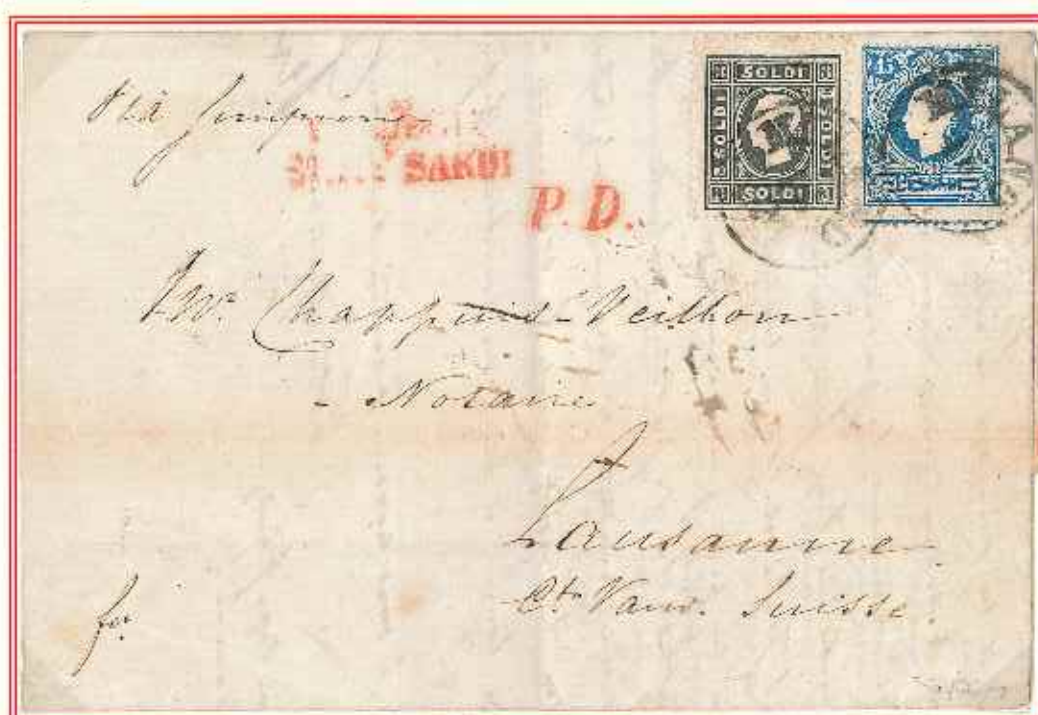 Via Simplon
SARDI
P. D.
SOLDI
SOLDI
SOLDI
SOLDI
15
Mr. Chappuis-Veillon
- Notaire
Lausanne
Ct. Vaud. Suisse.